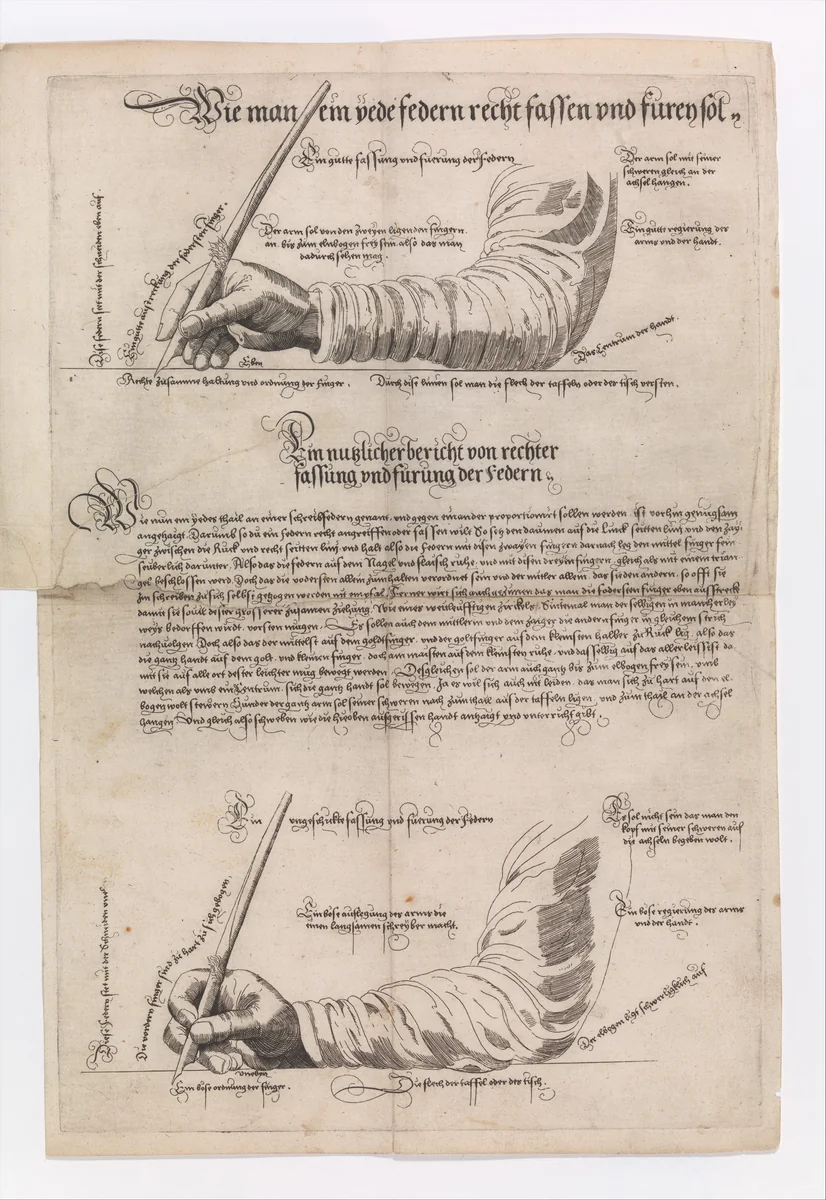 Wie man ein yede federn recht fassen vnd furen sol
Ein gutte fassung vnd fuerung der Federn
Der arm sol mit seiner
schweren gleich an der
achsel hangen.
Der arm sol von den zweyen ligenden fingern
an bis zum elnbogen frey sein. also das man
dadurch sehen mag.
Ein gutte regierung der
arms vnd der handt.
Dise federn stet mit der schneiden eben auf.
Ein gutte austreckung der fodersten finger.
Das Centrum der handt.
Eben
Rechte zusamme haltung vnd ordnung der finger.
Durch dise linien sol man die flech der taffeln oder des tisch versten.
Ein nutzlicher bericht von rechter
fassung vnd fürung der Federn
Wie nun ein yedes thail an einer schreibfedern genant, vnd gegen einander proportionirt sollen werden ist vorhin genugsam
angezaigt. Darumb so du ein federn recht angreiffen oder fassen wilt So setz den daumen auf die Linck seitten linj vnd den zay-
ger zwischen die Rück vnd recht seitten linj vnd halt also die federn mit disen zwayen fingern darnach leg den mittel finger fein
seuberlich darunter. Also das die federn auf dem Nagel vnd flaisch ruhe. vnd mit disen dreyen fingern gleich als mit einem trian-
gel beschlossen werd. Doch das die vodersten allein zum halten verordnet sein vnd der mitler allein das sie den andern so offt sie
zm schreiben zu sich selbst gezogen werden Ferner wirt sich auch das man die fodersten finger eben ausstreck
damit sie souil dester grosserer zusamen ziehung, Wie eines weitleufftigen zirckels, Sintemal man der selbigen in mancherley
weys bedorffen wirdt, vorsten mügen. Es sollen auch dem mittlern vnd dem zaiger die andern finger in gleichem strich
nachuolgen Doch also das der mittelst auf dem goldtfinger. vnd der goltfinger auf dem kleinsten halber zu Rück lig. also das
die gantz handt auf dem golt vnd kleinen finger, doch am maisten auf dem kleinsten ruhe. vnd dasselbig auf das aller leissest da-
mit sie auf alle ort dester leichter mug bewegt werden. Desgleichen sol der arm auch gantz bis zum elbogen frey sein, vmb
welchen als vmb ein Zentrum. sich die gantz handt sol bewegen. Ja es wil sich auch nit leiden, das man sich zu hart auf den el-
bogen wolt stewern Sunder der gantz arm sol seiner schweren nach zum thail auf der taffeln ligen, vnd zum thail an der achsel
hangen Vnd gleich also schweben wie die hieoben aufgerissen handt anzaigt vnd vnterricht gibt.
Ein vngeschickte fassung vnd fuerung der Federn
Es sol nicht sein das man den
kopf mit seiner schweren auf
die achseln begeben wolt.
Ein böse auflegung des arms die
einen langsamen schreyber macht.
Ein böse regierung des arms
vnd der handt.
Diese Federn stet mit der Schneiden
Die vordern finger sind zu hart zu sich gebogen.
Der elbogen ligt schwerlich auf
vneben
Ein böse ordnung der finger.
Die flech der taffel oder des tisch.